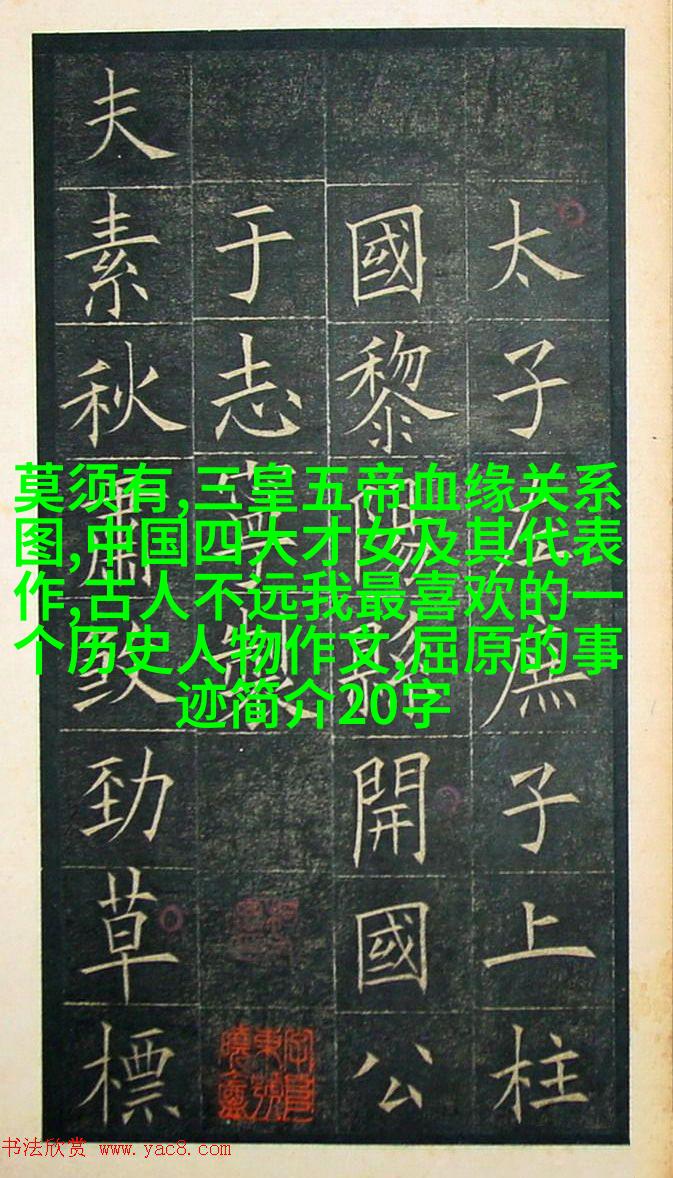 太子左庶子上柱
國黎陽開國公
于志寧製
夫素秋肅勁草標
莫须有,三皇五帝血缘关系
图,中国四大才女及其代表
作,古人不远我最喜欢的一
个历史人物作文,屈原的事
迹简介20字
书法欣赏 www.yac8.com